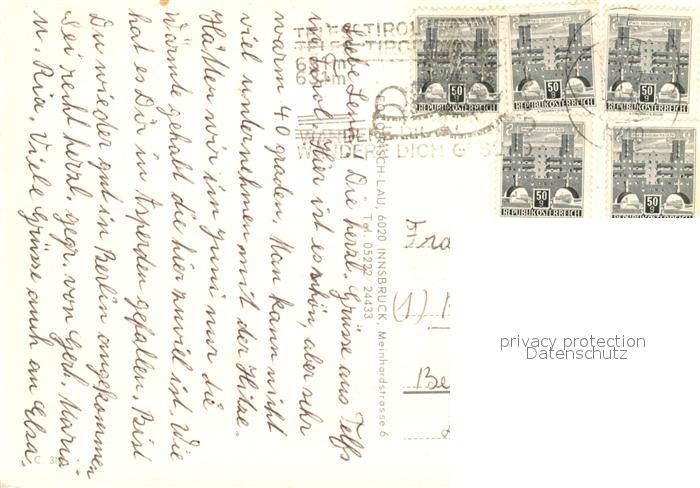 Liebe Die herzl. Grüsse aus Telfs
in Tirol. Hier ist es schön, aber sehr
warm 40 graden. Man kann nicht
viel unternehmen mit der Hitze.
Hätten wir im Juni nur die
Wärme gehabt die hier zuviel ist. Wie
hat es Dir in Asperden gefallen. Bist
Du wieder gut in Berlin angekommen
Sei recht herzl. gegr. von Gert. Maria
u. Ria. Viele Grüsse auch an Elsa.
C. 3
-LAU, 6020 INNSBRUCK, Meinhardstrasse 6
Tel. 05222 24433
TELFS TIROL
WANDERE DICH GESUND
50 g
REPUBLIK ÖSTERREICH
50 g
REPUBLIK ÖSTERREICH
50 g
REPUBLIK ÖSTERREICH
50 g
REPUBLIK ÖSTERREICH
50 g
REPUBLIK ÖSTERREICH
Fra
(1)
Be
privacy protection
Datenschutz